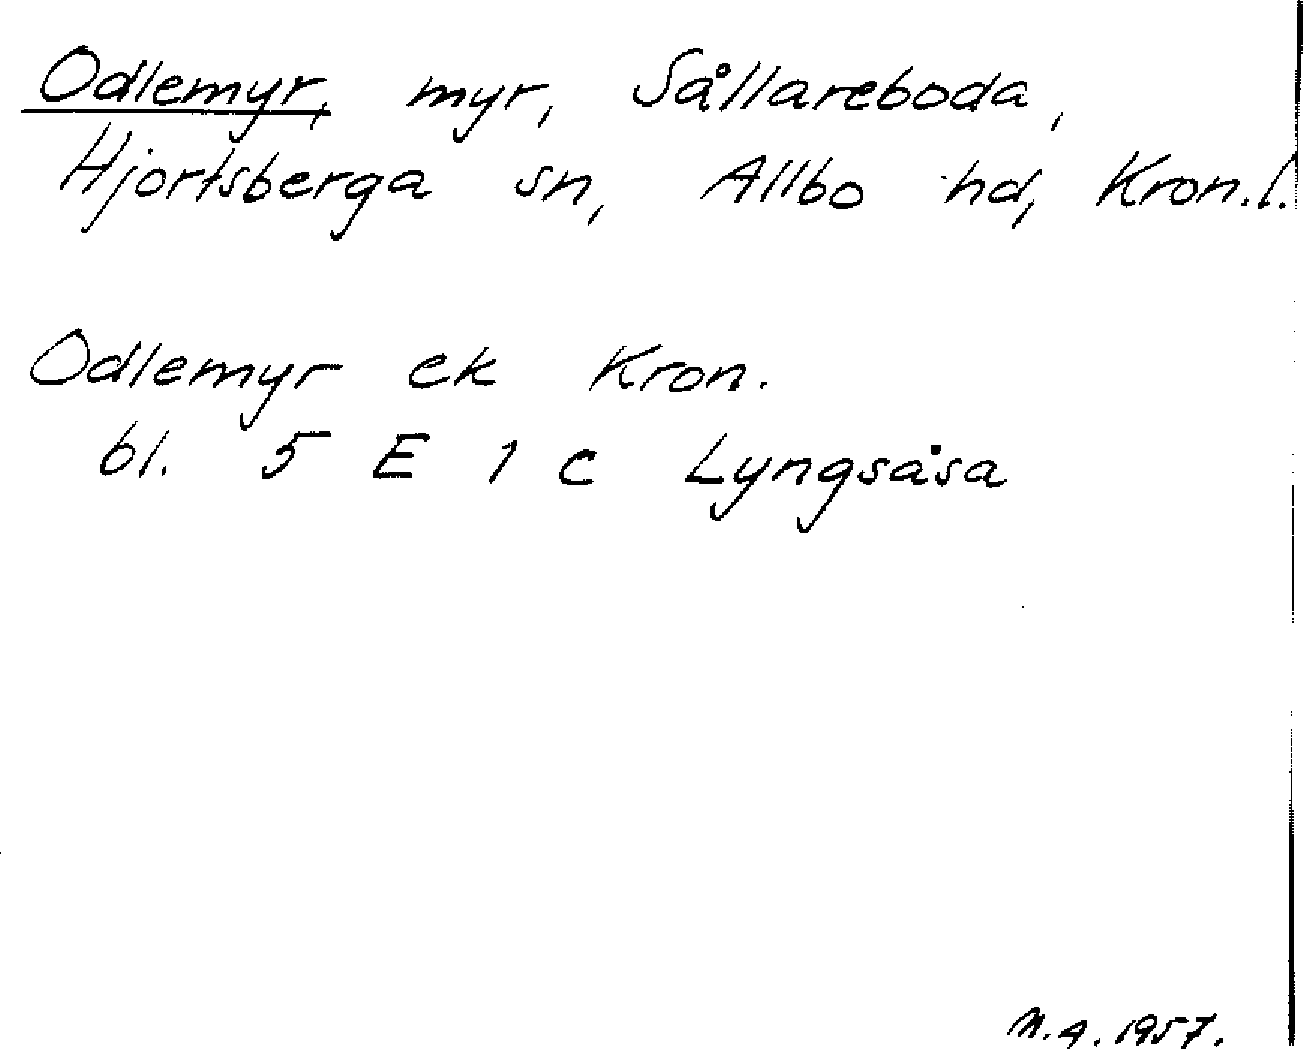 Odlemyr, myr, Sållareboda,
Hjortsberga sn, Allbo hd, Kron.l.
Odlemyr ek Kron.
bl. 5 E 1 c Lyngsåsa
N.A. 1957.